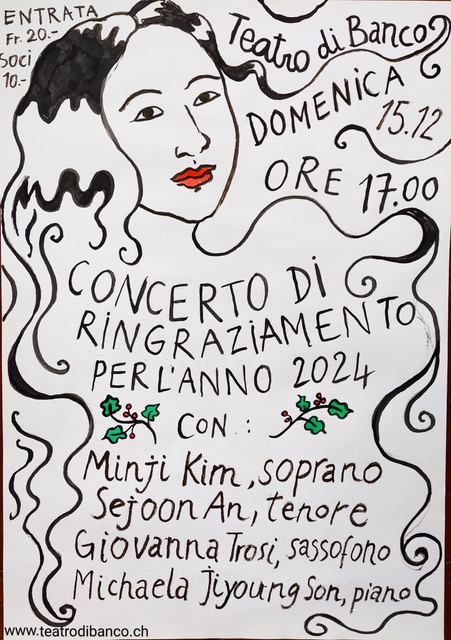 ENTRATA
Fr. 20.-
Soci
10.-
Teatro di Banco
DOMENICA
15.12
ORE 17.00
CONCERTO DI
RINGRAZIAMENTO
PER L'ANNO 2024
CON :
Minji Kim, soprano
Sejoon An, tenore
Giovanna Trosi, sassofono
Michaela Jiyoung Son, piano
www.teatrodibanco.ch